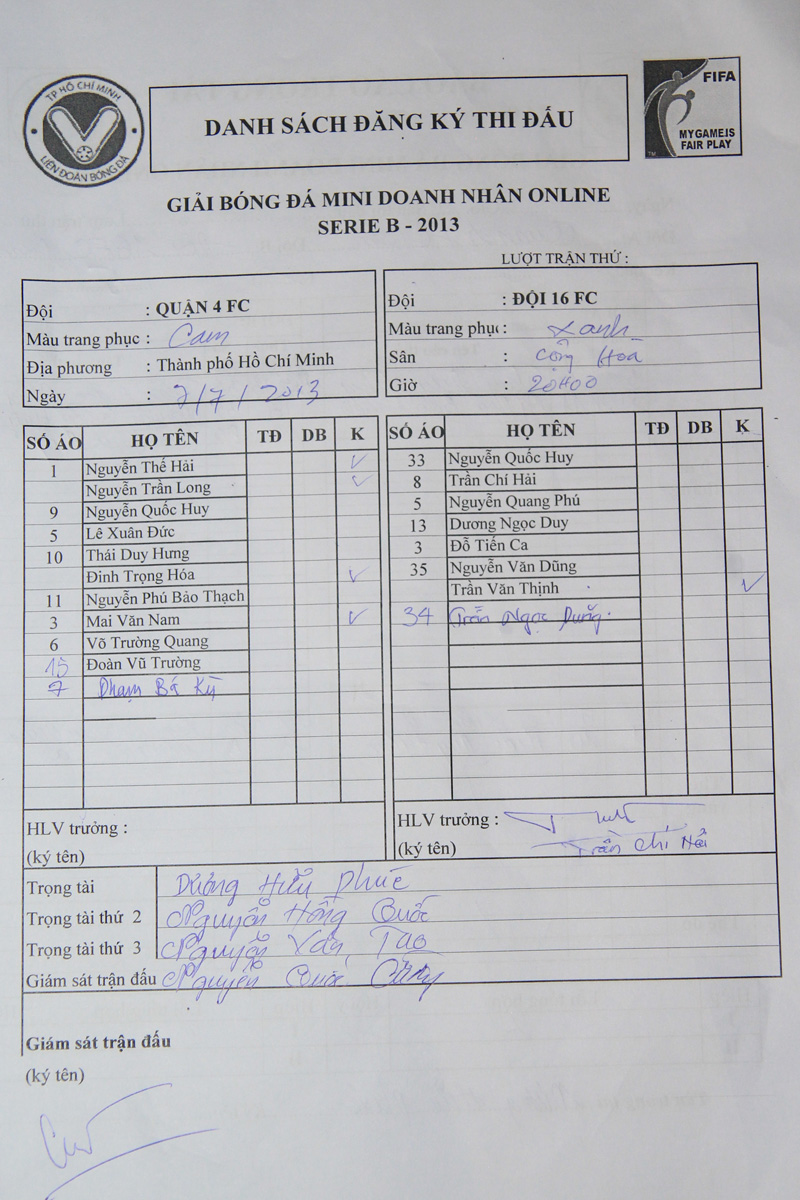 TP HỒ CHÍ MINH
LIÊN ĐOÀN BÓNG ĐÁ
DANH SÁCH ĐĂNG KÝ THI ĐẤU
FIFA
MYGAMEIS
FAIR PLAY
TM
GIẢI BÓNG ĐÁ MINI DOANH NHÂN ONLINE
SERIE B - 2013
LƯỢT TRẬN THỨ :
Đội : QUẬN 4 FC
Màu trang phục : Cam
Địa phương : Thành phố Hồ Chí Minh
Ngày : 7/7/2013
Đội : ĐỘI 16 FC
Màu trang phục : Xanh
Sân : Cộng Hoà
Giờ : 20H00
SỐ ÁO HỌ TÊN TĐ DB K
1 Nguyễn Thế Hải ✓
Nguyễn Trần Long ✓
9 Nguyễn Quốc Huy
5 Lê Xuân Đức
10 Thái Duy Hưng
Đinh Trọng Hóa ✓
11 Nguyễn Phú Bảo Thạch
3 Mai Văn Nam ✓
6 Võ Trường Quang
15 Đoàn Vũ Trường
7 Phạm Bá Kỳ
HLV trưởng :
(ký tên)
SỐ ÁO HỌ TÊN TĐ DB K
33 Nguyễn Quốc Huy
8 Trần Chí Hải
5 Nguyễn Quang Phú
13 Dương Ngọc Duy
3 Đỗ Tiến Ca
35 Nguyễn Văn Dũng
Trần Văn Thịnh ✓
34 Trần Ngọc Dũng
HLV trưởng :
(ký tên) Trần Chí Hải
Trọng tài Dương Hữu Phúc
Trọng tài thứ 2 Nguyễn Hồng Quốc
Trọng tài thứ 3 Nguyễn Văn Tạo
Giám sát trận đấu Nguyễn Quốc
Giám sát trận đấu
(ký tên)